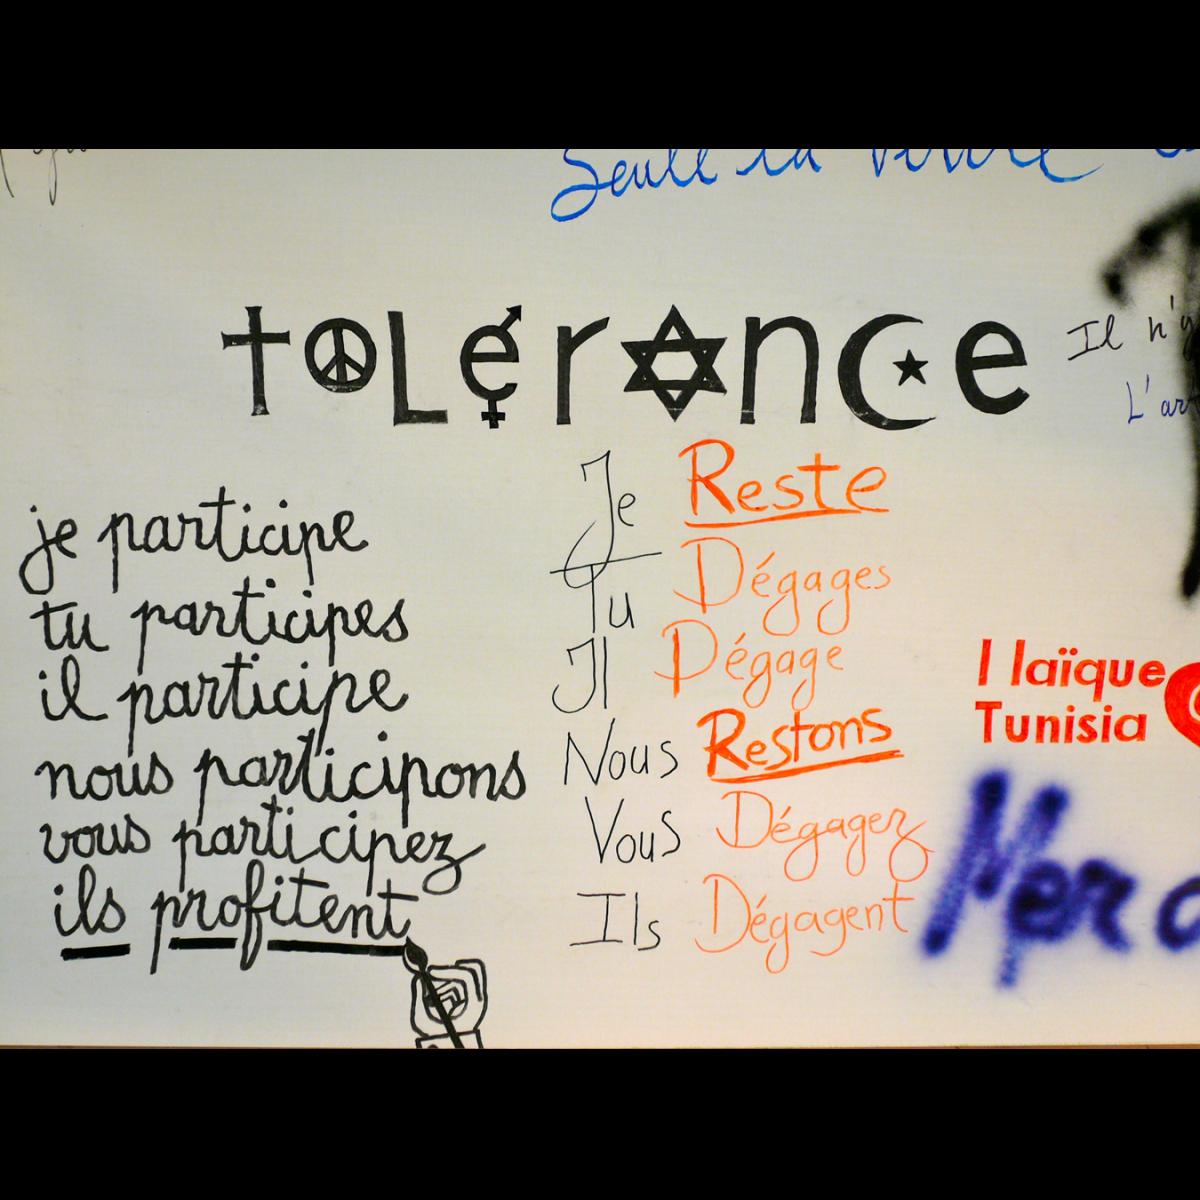 Seule la vérité
tolérance
Il n'y
L'ar
je participe
tu participes
il participe
nous participons
vous participez
ils profitent
Je Reste
Tu Dégages
Il Dégage
Nous Restons
Vous Dégagez
Ils Dégagent
I laïque
Tunisia